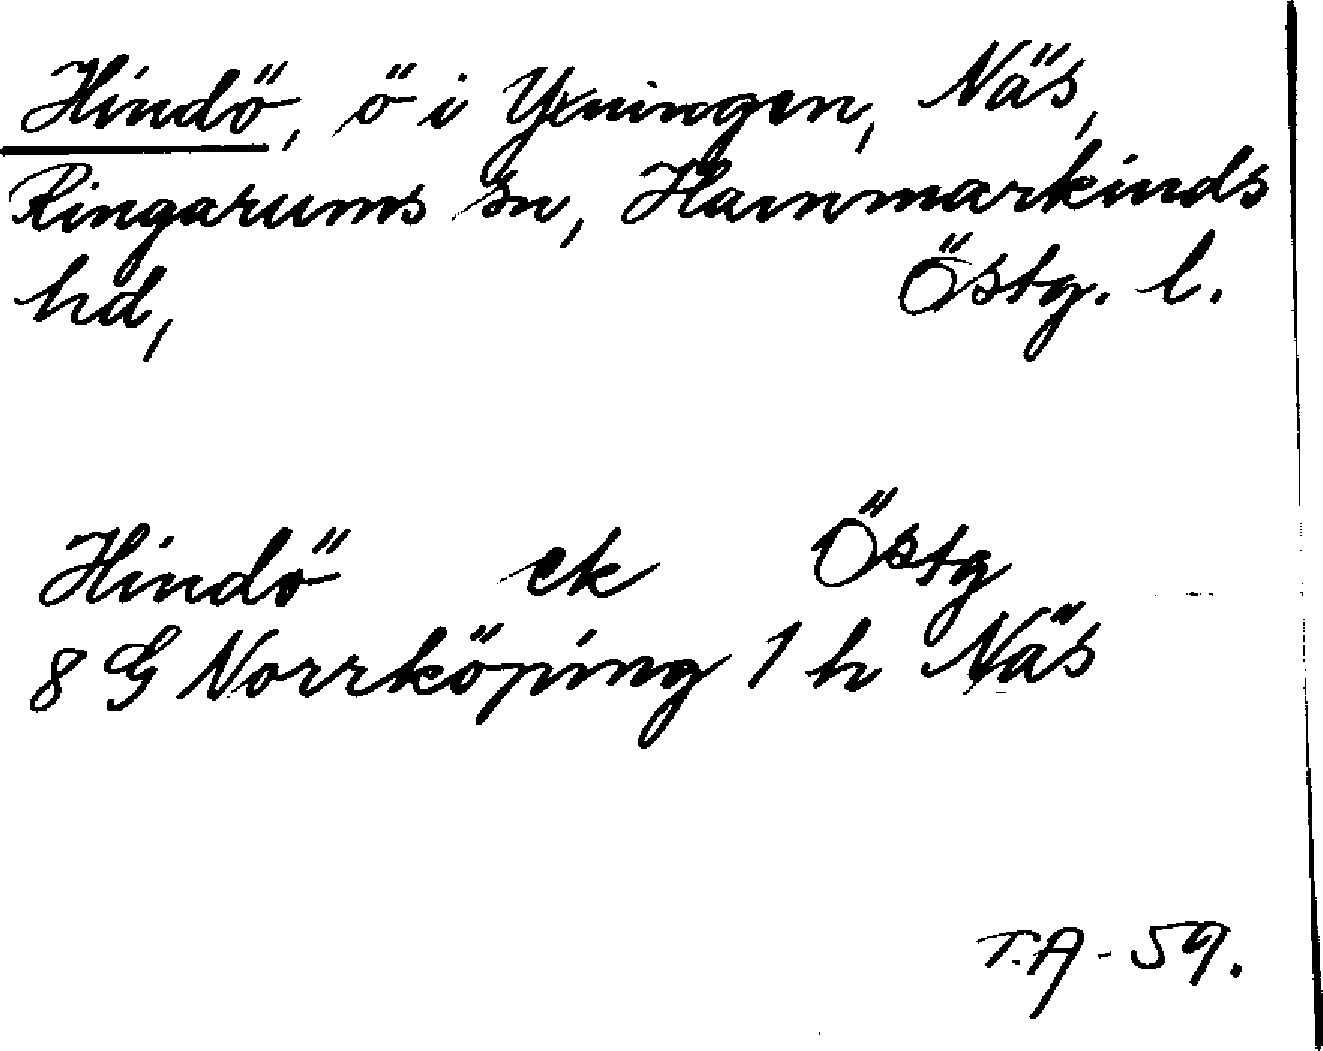 Hindö, ö i Yxningen, Näs,
Ringarums sn, Hammarkinds
hd, Östg. l.
Hindö ek Östg
8 G Norrköping 1 h Näs
T.A - 59.